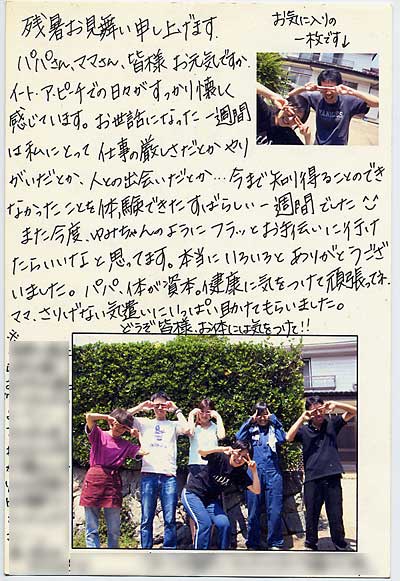 残暑お見舞い申し上げます.
お気に入りの
一枚です↓
パパさん、ママさん、皆様 お元気ですか.
イート・ア・ピーチでの日々がすっかり懐しく
感じています。お世話になった一週間
は私にとって 仕事の厳しさだとか やり
がいだとか、人との出会いだとか…今まで知り得ることのでき
なかったことを体験できたすばらしい一週間でした
また今度、ゆみちゃんのようにフラッとお手伝いに行け
たらいいなと思ってます。本当にいろいろとありがとうござい
ました。パパ、体が資本。健康に気をつけて頑張ってネ.
ママ、さりげない気遣いにいっぱい助けてもらいました。
どうぞ皆様、お体には気をつけて!!